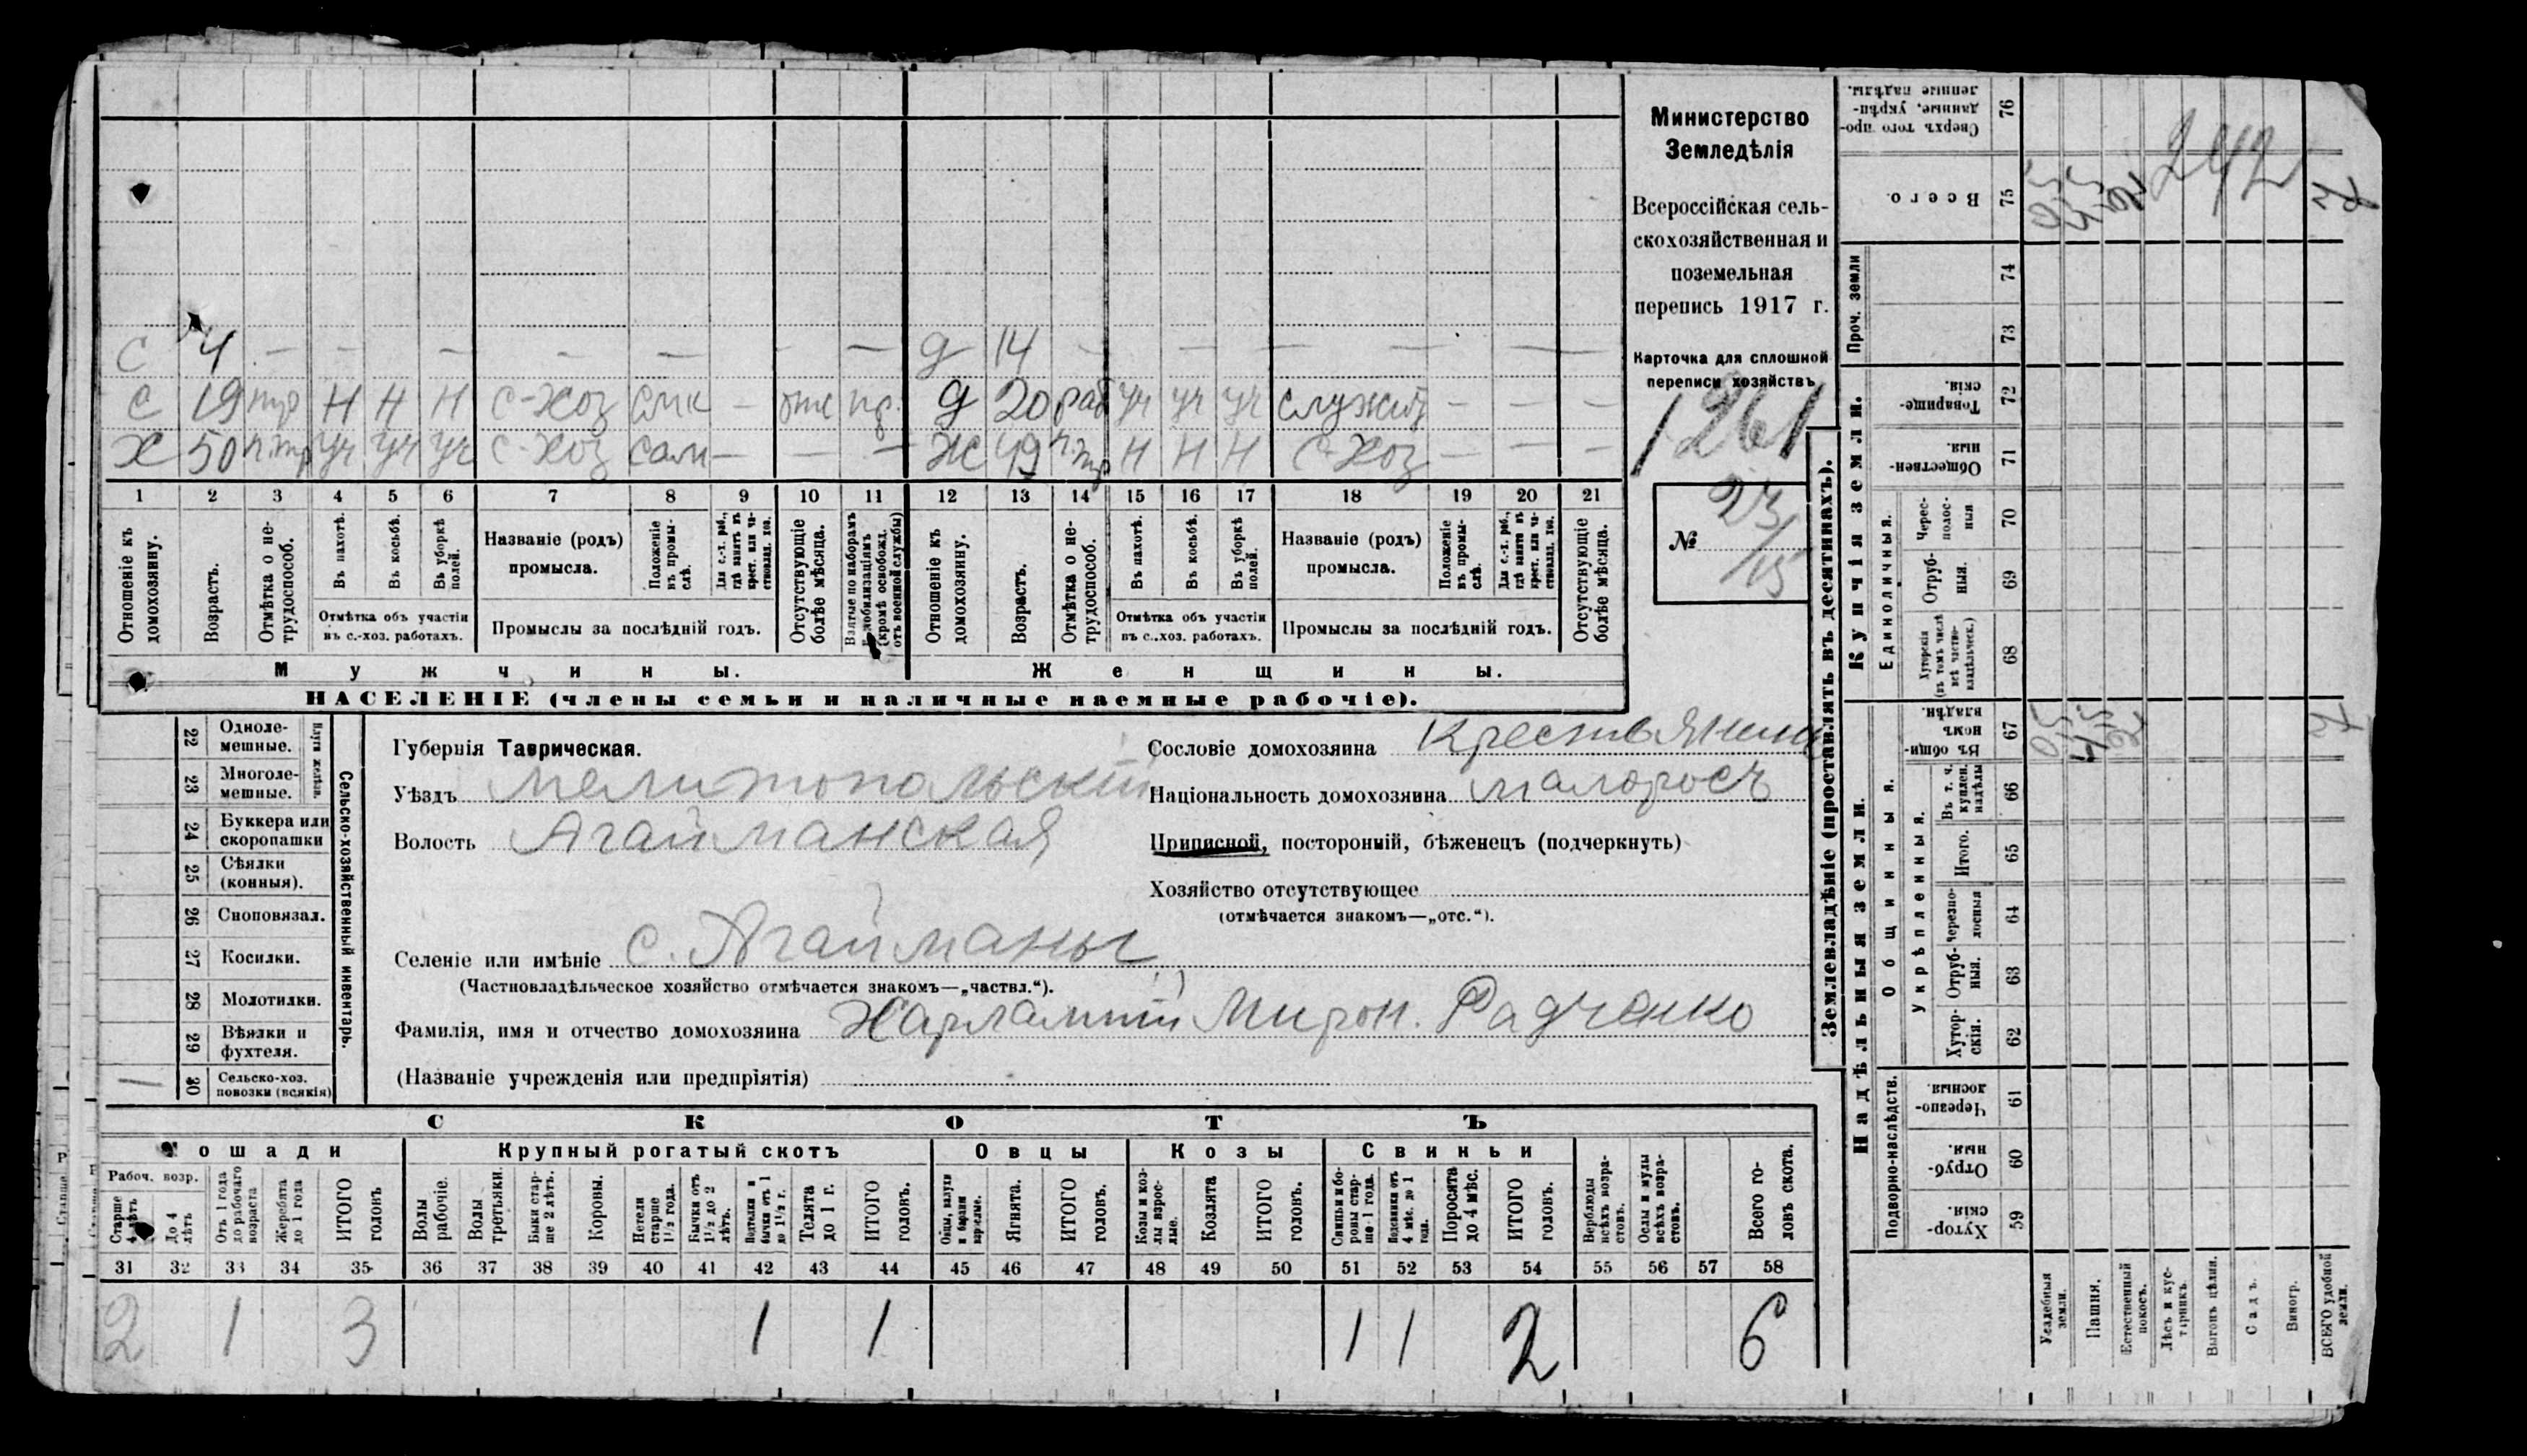 Министерство
Земледѣлія
Всероссійская сель-
скохозяйственная и
поземельная
перепись 1917 г.
Карточка для сплошной
переписи хозяйствъ
1261
№ 23/15
С 4 — — — — — — — Д 14 — — — — — —
С 19 тр Н Н Н С-Хоз — Д 20 раб уч уч уч служит — — —
Х 50 п.тр уч уч уч С-Хоз сам — — — Ж 49 п.тр Н Н Н С-Хоз — — —
1 2 3 4 5 6 7 8 9 10 11 12 13 14 15 16 17 18 19 20 21
Отношеніе къ домохозяину.
Возрасть.
Отмѣтка о не-трудоспособ.
Въ пахотѣ.
Въ косьбѣ.
Въ уборкѣ полей.
Отмѣтка объ участіи въ с.-хоз. работахъ.
Названіе (родъ) промысла.
Положеніе въ промы-слѣ.
Для с.-х. раб., гдѣ занятъ въ крест. или ча-стновлад. хоз.
Промыслы за послѣдній годъ.
Отсутствующіе болѣе мѣсяца.
Взятые по наборамъ и мобилизаціямъ (кромѣ освобожд. отъ военной службы)
Отношеніе къ домохозяину.
Возрастъ.
Отмѣтка о не-трудоспособ.
Въ пахотѣ.
Въ косьбѣ.
Въ уборкѣ полей.
Отмѣтка объ участіи въ с..хоз. работахъ.
Названіе (родъ) промысла.
Положеніе въ промы-слѣ.
Для с.-х. раб., гдѣ занятъ въ крест. или ча-стновлад. хоз.
Промыслы за послѣдній годъ.
Отсутствующіе болѣе мѣсяца.
Мужчины. Женщины.
НАСЕЛЕНІЕ (члены семьи и наличные наемные рабочіе).
Сельско-хозяйственный инвентарь.
Плуги желѣзн.
22 Одноле-мешные.
23 Многоле-мешные.
24 Буккера или скоропашки
25 Сѣялки (конныя).
26 Сноповязал.
27 Косилки.
28 Молотилки.
29 Вѣялки и фухтеля.
30 Сельско-хоз. повозки (всякія) 1
Губернія Таврическая.
Уѣздъ Мелитопольскій
Волость Агайманская
Селеніе или имѣніе с. Агайманы
(Частновладѣльческое хозяйство отмѣчается знакомъ—„частвл.“).
Фамилія, имя и отчество домохозяина Харлампій Мирон. Радченко
(Названіе учрежденія или предпріятія)
Сословіе домохозяина Крестьянин
Національность домохозяина малоросъ
Приписной, посторонній, бѣженецъ (подчеркнуть)
Хозяйство отсутствующее
(отмѣчается знакомъ—„отс.“).
СКОТЪ
Лошади Крупный рогатый скотъ Овцы Козы Свиньи
Рабоч. возр.
Старше 4 лѣтъ
До 4 лѣтъ
Отъ 1 года до рабочаго возраста
Жеребята до 1 года
ИТОГО головъ
Волы рабочіе.
Волы третьяки.
Быки стар-ше 2 лѣтъ.
Коровы.
Нетели старше 1½ года.
Бычки отъ 1½ до 2 лѣтъ.
бычки отъ 1 до 1½ г.
Телята до 1 г.
ИТОГО головъ.
Овцы, валухи и бараны взрослые.
Ягнята.
ИТОГО головъ.
Козы и коз-лы взрос-лые.
Козлята
ИТОГО головъ.
Свиньи и бо-ровы стар-ше 1 года.
Подсвинки отъ 4 мѣс. до 1 года.
Поросята до 4 мѣс.
ИТОГО головъ.
Верблюды всѣхъ возра-стовъ.
Ослы и мулы всѣхъ возра-стовъ.
Всего го-ловъ скота.
31 32 33 34 35 36 37 38 39 40 41 42 43 44 45 46 47 48 49 50 51 52 53 54 55 56 57 58
2 1 3 1 1 1 1 2 6
Землевладѣніе (проставлять въ десятинахъ).
Надѣльныя земли. Купчія земли. Проч. земли
Подворно-наслѣдств.
Общинныя.
Укрѣпленныя.
Единоличныя.
Хутор-скія. 59
Отруб-ныя. 60
Черезпо-лосныя. 61
Хутор-скія. 62
Отруб-ныя. 63
Черезпо-лосныя 64
Итого. 65
Въ т. ч. куплен. надѣлы 66
Въ общин-номъ владѣн. 67
Хуторскія (въ томъ числѣ всѣ частно-владѣльческ.) 68
Отруб-ныя. 69
Черес-полос-ныя 70
Обществен-ныя. 71
Товарище-скія. 72
73
74
Всего. 75
Сверхъ того про-данные, укрѣп-ленные надѣлы. 76
242
Усадебныя земли.
Пашня.
Естественный покосъ.
Лѣсъ и кус-тарникъ.
Выгонъ цѣлин.
Садъ.
Виногр.
ВСЕГО удобной земли.